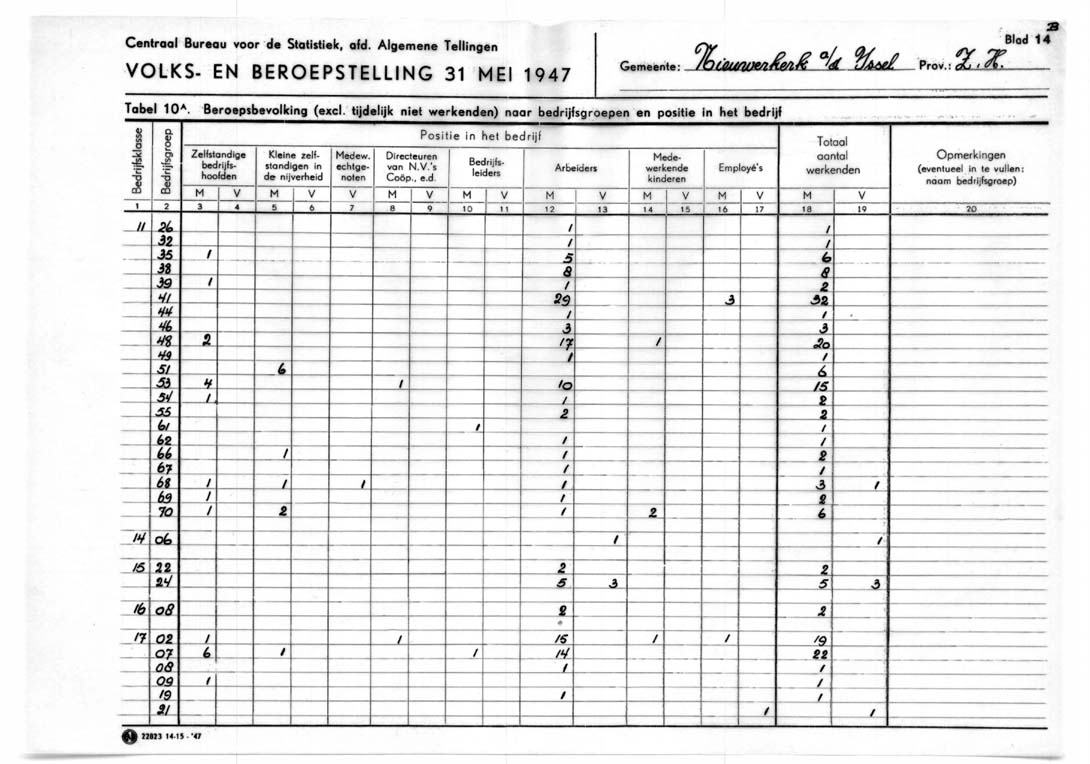 B
Blad 14
Centraal Bureau voor de Statistiek, afd. Algemene Tellingen
VOLKS- EN BEROEPSTELLING 31 MEI 1947
Gemeente: Nieuwerkerk a/d Yssel Prov.: Z. H.
Tabel 10A. Beroepsbevolking (excl. tijdelijk niet werkenden) naar bedrijfsgroepen en positie in het bedrijf
Bedrijfsklasse
Bedrijfsgroep
Positie in het bedrijf
Zelfstandige bedrijfs-hoofden
Kleine zelf-standigen in de nijverheid
Medew. echtge-noten
Directeuren van N.V.'s Coöp., e.d.
Bedrijfs-leiders
Arbeiders
Mede-werkende kinderen
Employé's
Totaal aantal werkenden
Opmerkingen (eventueel in te vullen: naam bedrijfsgroep)
M V M V V M V M V M V M V M V M V
1 2 3 4 5 6 7 8 9 10 11 12 13 14 15 16 17 18 19 20
11 26 1 1
32 1 1
35 1 5 6
38 8 8
39 1 1 2
41 29 3 32
44 1 1
46 3 3
48 2 17 1 20
49 1 1
51 6 6
53 4 1 10 15
54 1 1 2
55 2 2
61 1 1
62 1 1
66 1 1 2
67 1 1
68 1 1 1 1 3 1
69 1 1 2
70 1 2 1 2 6
14 06 1 1
15 22 2 2
24 5 3 5 3
16 08 2 2
17 02 1 1 15 1 1 19
07 6 1 1 14 22
08 1 1
09 1 1
19 1 1
21 1 1
22823 14-15 - '47